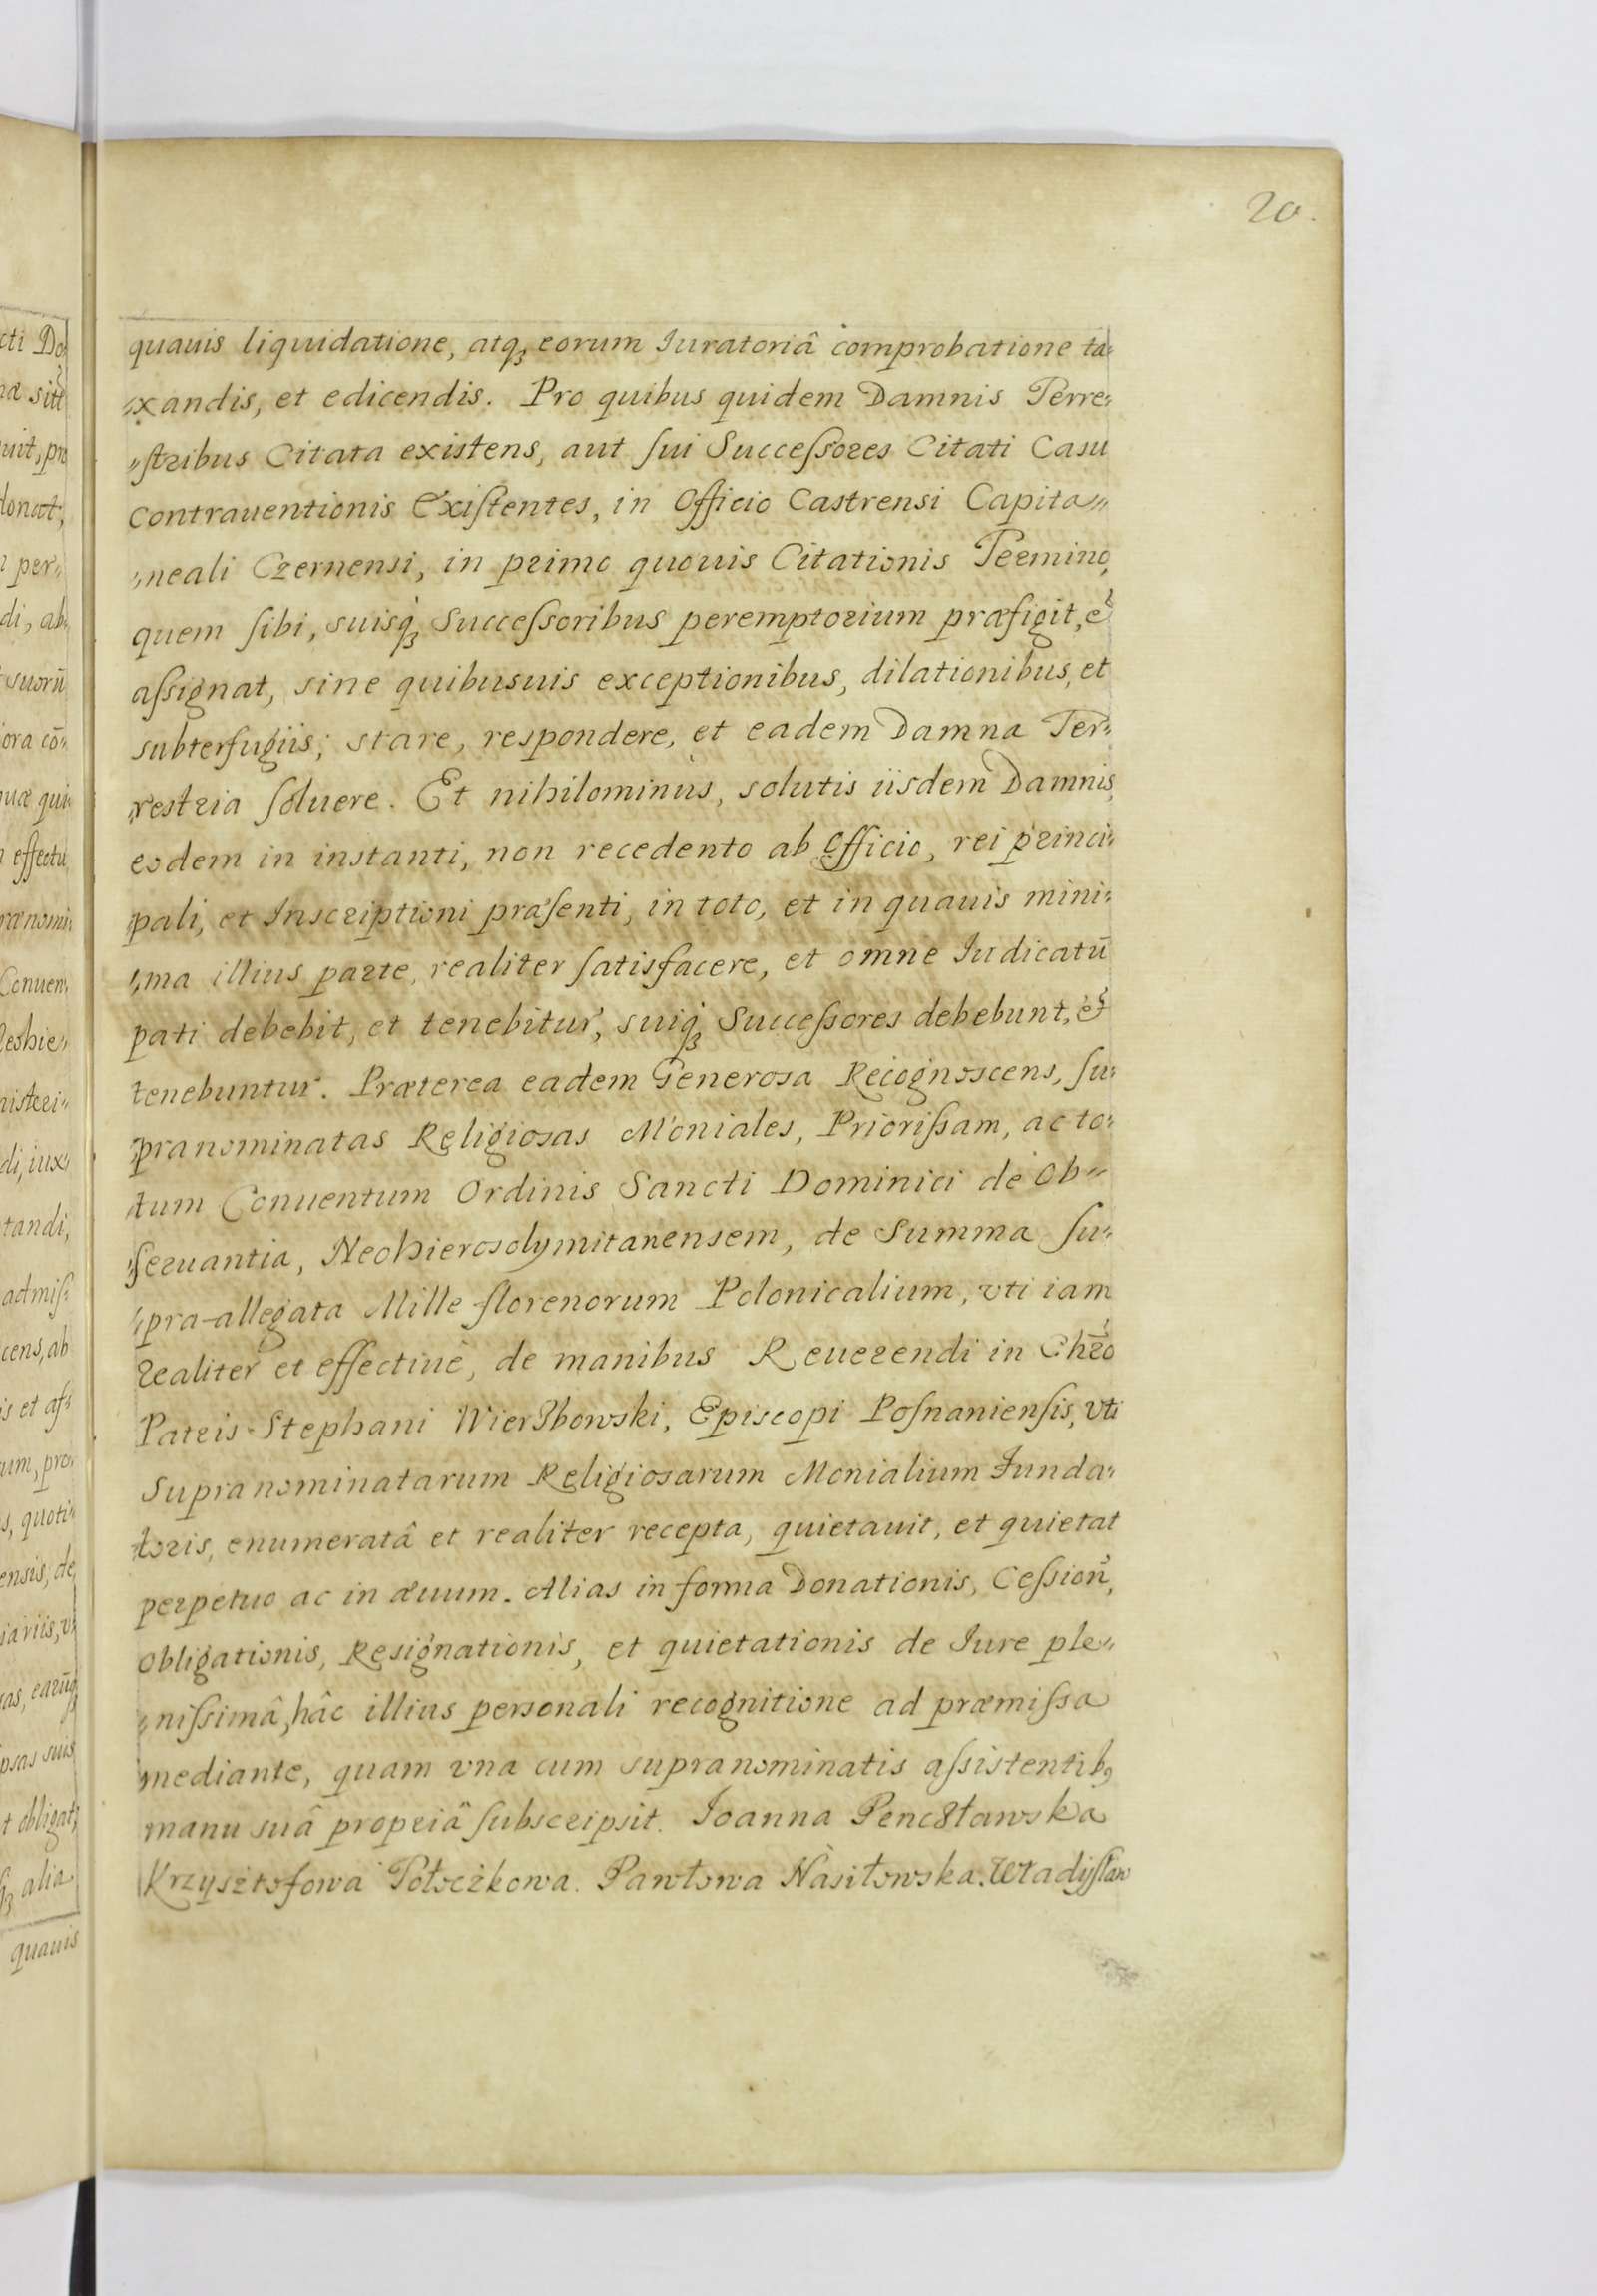 20.
quauis liquidatione, atqꝫ eorum Iuratoriâ comprobatione ta„
„xandis, et edicendis. Pro quibus quidem Damnis Terre„
„ſtribus Citata existens, aut ſui Succeſsores Citati Casu
Contrauentionis Exiſtentes, in Officio Castrensi Capita„
„neali Czernensi, in primo quouis Citationis Termino,
quem ſibi, suisqꝫ Succeſsoribus peremptorium præfigit, et
aſsignat, sine quibusuis exceptionibus, dilationibus, et
subterfugiis; stare, respondere, et eadem Damna Ter„
„restria ſoluere. Et nihilominus, solutis iisdem Damnis,
eodem in instanti, non recedento ab Officio, rei princi„
pali, et Inscriptioni præſenti, in toto, et in quauis mini„
„ma illius parte, realiter ſatisfacere, et omne Iudicatū
pati debebit, et tenebitur, suiqꝫ Succeſsores debebunt, et
tenebuntur. Præterea eadem Generosa Recognoscens, ſu„
„pranominatas Religiosas Moniales, Prioriſsam, ac to„
„tum Conuentum Ordinis Sancti Dominici de Ob„
„ſeruantia, Neohierosolymitanensem, de Summa ſu„
„pra-allegata Mille florenorum Polonicalium, vti iam
realiter et effectiuè, de manibus Reuerendi in Chr̄o
Patris Stephani Wierzbowski, Episcopi Poſnanienſis, vti
Supranominatarum Religiosarum Monialium Funda„
„toris, enumeratâ et realiter recepta, quietauit, et quietat
perpetuo ac in æuum. Alias in forma Donationis, Ceſsion̄,
Obligationis, Resignationis, et quietationis de Iure ple„
„niſsimâ, hâc illius personali recognitione ad præmiſsa
mediante, quam vna cum supranominatis aſsistentibꝰ
manu suâ propriâ ſubscripsit. Joanna Pencsławska
Krzysztofowa Połoczkowa. Pawłowa Nasiłowska. Władyſław
cti Do„
uit, pro
donat,
per„
di, ab„
suorū
ora cō„
uæ qui„
effectu
rænomi„
Conuen„
eohie„
nisteri„
di, iux„
tandi,
admiſ„
cens, ab
is et aſ„
um, pro„
s, quoti„
ensis, de
iariis, v„
as, earūqꝫ
psas suis
t obligat,
alia
quauis